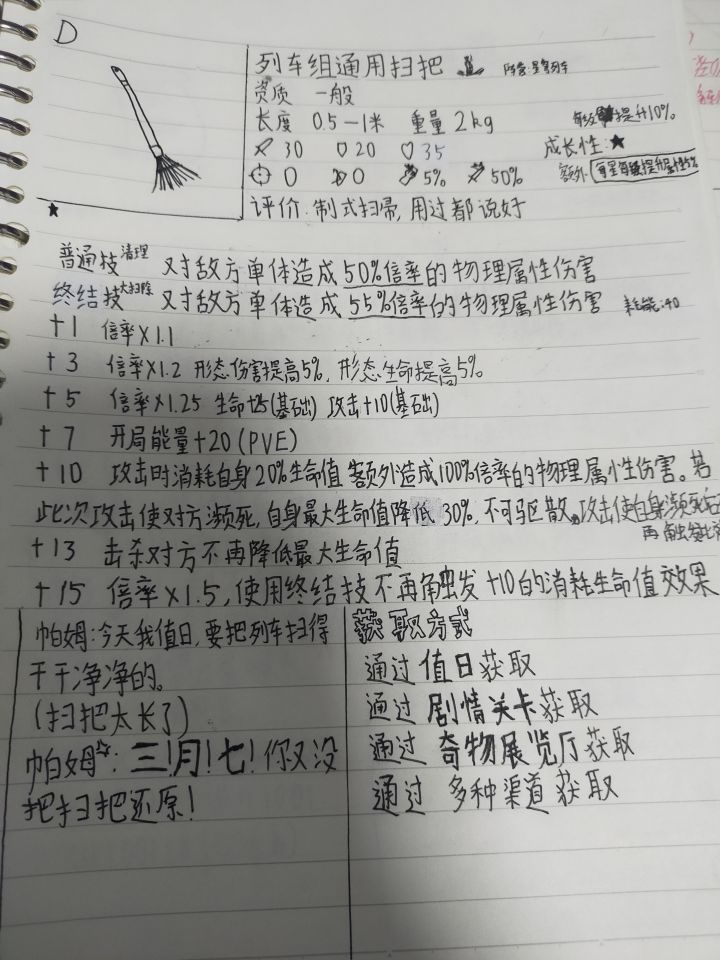 D
列车组通用扫把 阵营:星穹列车
资质 一般
长度 0.5—1米 重量 2kg 每级提升10%
30 20 35 成长性:★
0 0 5% 50% 额外 每星每级提升属性5%
评价:制式扫帚,用过都说好
★
普通技 清理 对敌方单体造成50%倍率的物理属性伤害
终结技 大扫除 对敌方单体造成55%倍率的物理属性伤害 耗能:40
+1 倍率×1.1
+3 倍率×1.2 形态伤害提高5%,形态生命提高5%
+5 倍率×1.25 生命+25(基础) 攻击+10(基础)
+7 开局能量+20(PVE)
+10 攻击时消耗自身20%生命值 额外造成100%倍率的物理属性伤害。若
此次攻击使对方濒死,自身最大生命值降低30%,不可驱散。攻击使自身濒死
再触发
+13 击杀对方不再降低最大生命值
+15 倍率×1.5,使用终结技不再触发+10的消耗生命值效果
帕姆:今天我值日,要把列车扫得
干干净净的。
(扫把太长了)
帕姆☆:三!月!七!你又没
把扫把还原!
获取方式
通过 值日获取
通过 剧情关卡获取
通过 奇物展览厅获取
通过 多种渠道获取